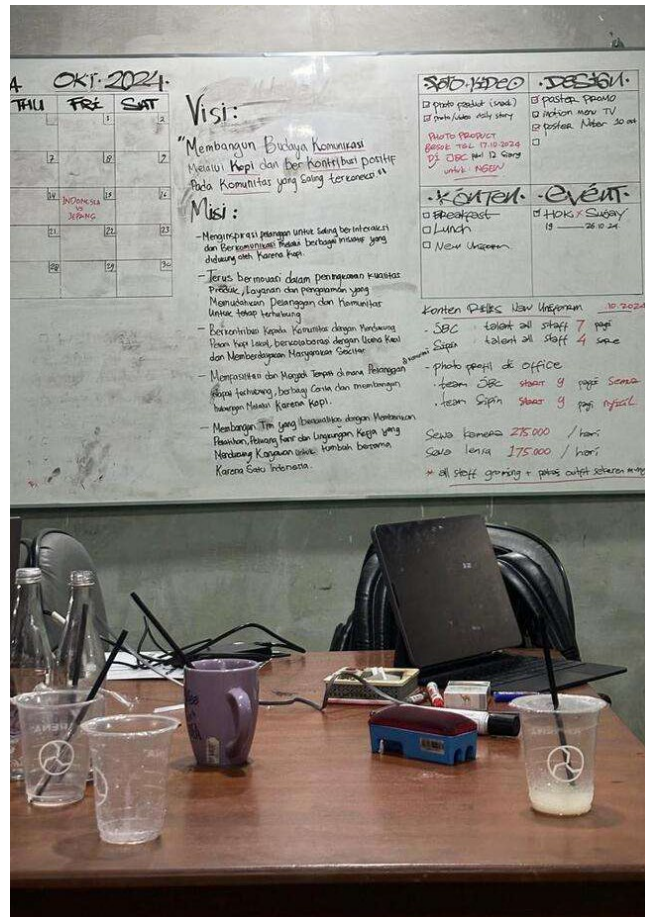 OKT. 2024.
THU FRI SAT
1 2
7 8 9
14 15 16
INDONESIA
VS
JEPANG
21 22 23
28 29 30
Visi :
"Membangun Budaya Komunikasi
Melalui Kopi dan Ber Kontribusi positif
Pada Komunitas yang Saling terkoneksi"
Misi :
- Menginspirasi pelanggan untuk Saling berinteraksi
dan Berkomunikasi melalui berbagai inisiatif yang
didukung oleh Karena Kopi.
- Terus berinovasi dalam peningkatan kualitas
Produk, Layanan dan pengalaman yang
Memudahkan Pelanggan dan Komunitas
Untuk tetap terhubung
- Berkontribusi Kepada Komunitas dengan Mendukung
Petani Kopi Lokal, berkolaborasi dengan Usaha Kecil
dan Memberdayakan Masyarakat Sekitar
- Memfasilitasi dan Menjadi Tempat dimana Pelanggan
dapat terhubung, berbagi Cerita dan membangun
hubungan Melalui Karena Kopi.
- Membangun Tim yang Berkualitas dengan Memberikan
Pelatihan, Peluang Karir dan Lingkungan Kerja yang
Mendukung Karyawan untuk tumbuh bersama
Karena Satu Indonesia.
FOTO. VIDEO
photo product (snack)
photo/video daily story
PHOTO PRODUCT
BESOK TGL 17.10.2024
DI SBC pkl 12 Siang
untuk NGEN
.DESIGN.
poster PROMO
motion menu TV
poster Nater 30 okt
.KONTEN.
Breakfast
Lunch
New
.EVENT.
HOK X Sugoy
19 — 26 10 24
Konten New Uniform .10.2024
- SBC . talent all staff 7 pagi
Sipin talent all staff 4 sore
- photo profil di office
. team SBC start 9 pagi
. team Sipin start 9 pagi
Sewa kamera 275.000 / hari
Sewa lensa 175.000 / hari
* all staff groming + outfit